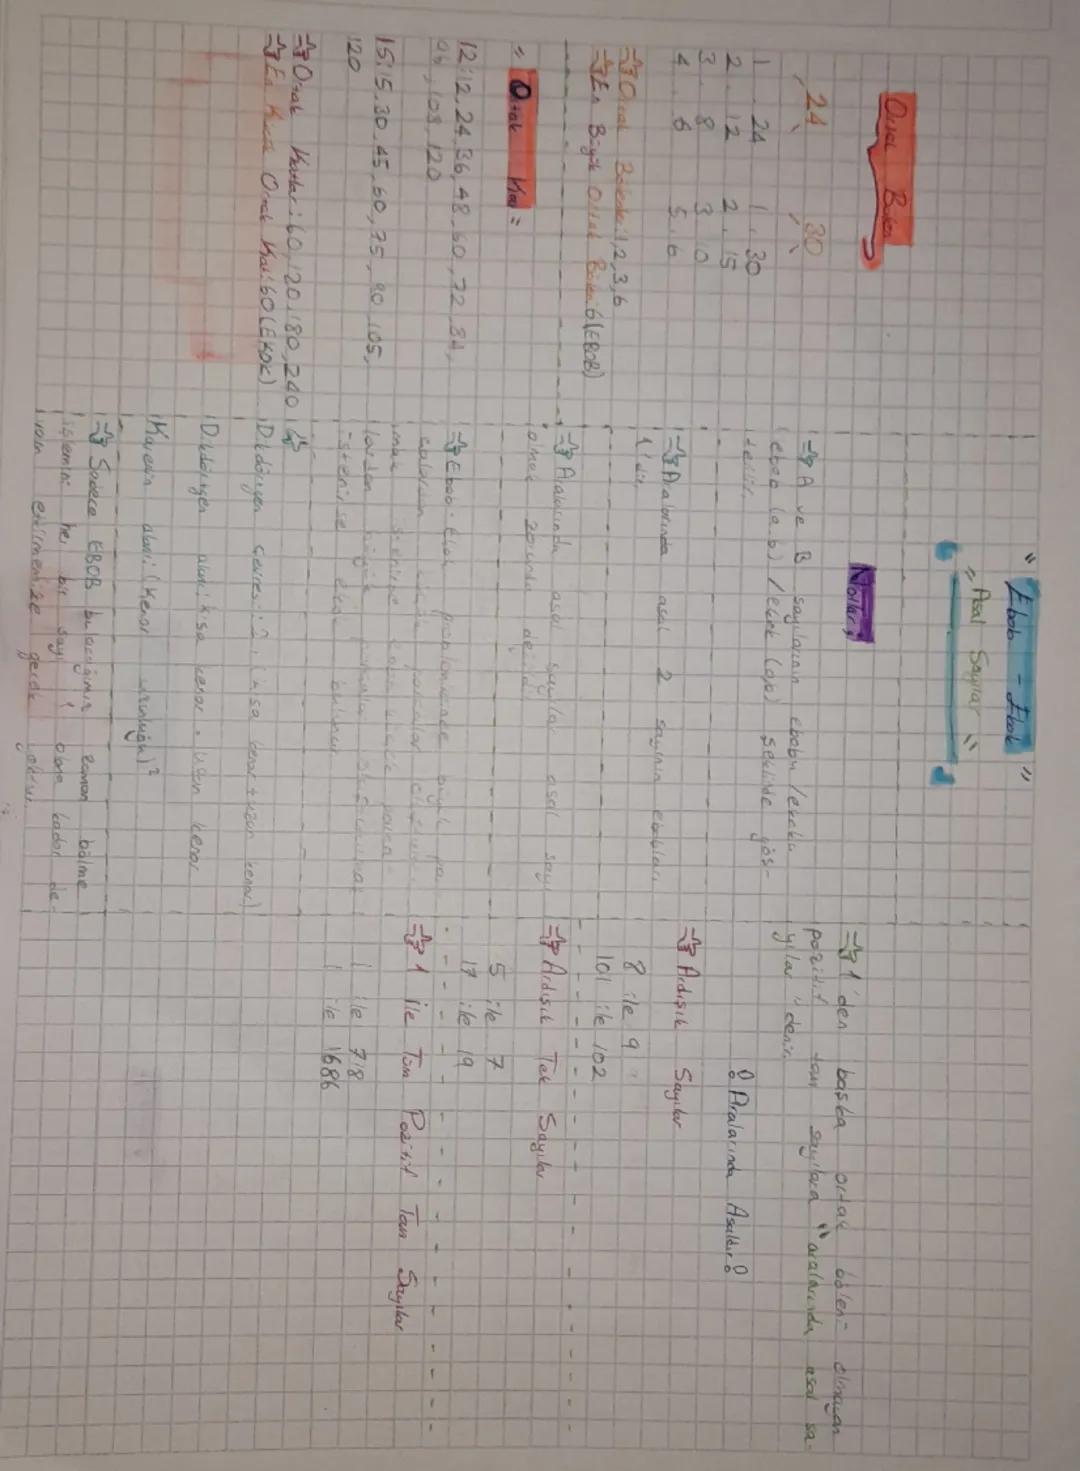 "Ebob - Ekok"
"Asal Sayılar"
Ortak Bölen
24 30
1 . 24 1 . 30
2 . 12 2 . 15
3 . 8 3 . 10
4 . 6 5 . 6
⇒ Ortak Bölenler: 1, 2, 3, 6
⇒ En Büyük Ortak Bölen: 6 (EBOB)
" Ortak Kat =
12: 12, 24, 36, 48, 60, 72, 84,
96, 108, 120
15: 15, 30, 45, 60, 75, 90, 105,
120
⇒ Ortak Katlar: 60, 120, 180, 240
⇒ En Küçük Ortak Kat: 60 (EKOK)
Notlar;
⇒ A ve B sayılarının ebobu / ekoku
ebob (a.b) / ekok (a.b) şeklinde gös-
terilir.
⇒ Aralarında asal 2 sayının ebobları
1'dir.
⇒ Aralarında asal sayılar asal sayı
olmak zorunda değildir.
⇒ Ebob - Ekok problemlerinde büyük
istenirse
Dikdörtgen çevresi: 2. (kısa kenar + uzun kenar)
Dikdörtgen alanı: kısa kenar . uzun kenar
Karenin alanı: (Kenar uzunluğu)²
⇒ Sadece EBOB bulacağımız zaman bölme
işlemini her bir sayı 1 olana kadar de-
vam ettirmemize gerek yoktur.
⇒ 1'den başka ortak böleni olmayan
pozitif tam sayılara "aralarında asal sa-
yılar" denir.
Aralarında Asaldır
⇒ Ardışık Sayılar
8 ile 9
101 ile 102
⇒ Ardışık Tek Sayılar
5 ile 7
17 ile 19
⇒ 1 ile Tüm Pozitif Tam Sayılar
1 ile 718
1 ile 1686